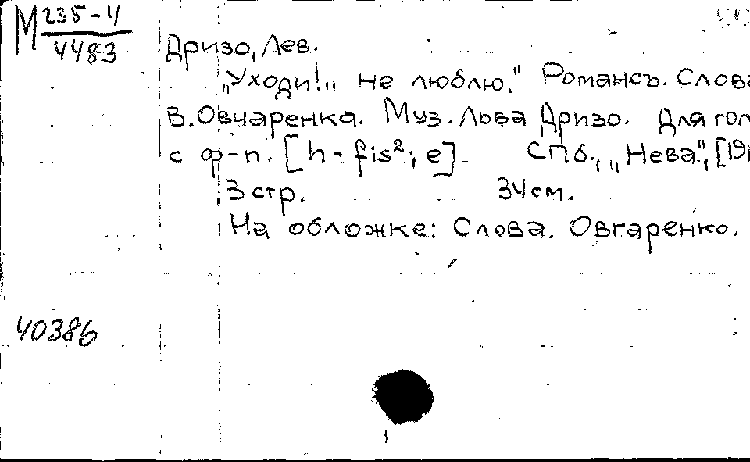 М 235-4
4483
Дризо, Лев.
„Уходи!„ не люблю." Романсъ. Слова
В. Овчаренка. Муз. Лова Дризо. Для гол
с ф-п. [h - fis²; e]. СПб., „Нева", [191
3 стр. 34 см.
На обложке: Слова. Овгаренко.
40386